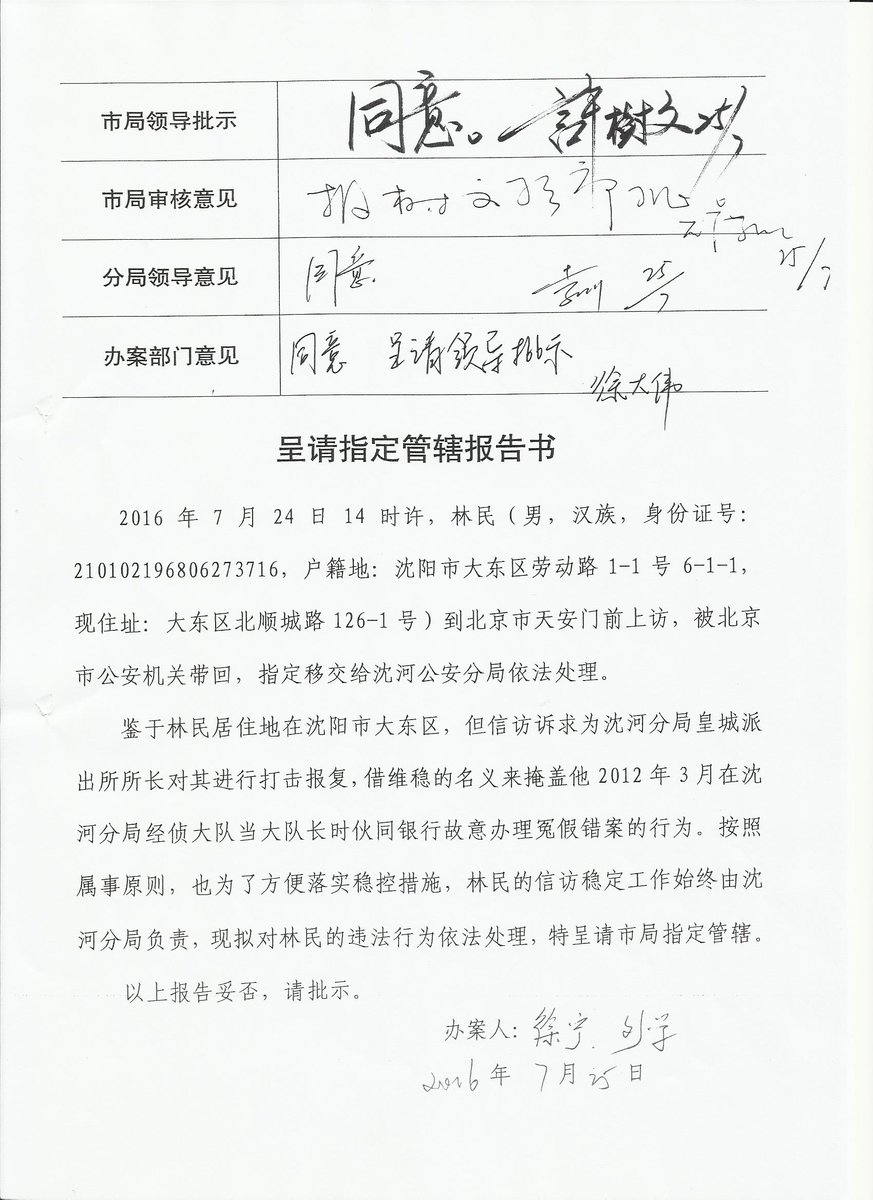 市局领导批示 同意。 許樹文 25/7
市局审核意见 报树文 25/7
分局领导意见 同意 25/7
办案部门意见 同意 呈请领导批示
徐大伟
呈请指定管辖报告书
2016 年 7 月 24 日 14 时许，林民（男，汉族，身份证号：
210102196806273716，户籍地：沈阳市大东区劳动路 1-1 号 6-1-1，
现住址：大东区北顺城路 126-1 号）到北京市天安门前上访，被北京
市公安机关带回，指定移交给沈河公安分局依法处理。
鉴于林民居住地在沈阳市大东区，但信访诉求为沈河分局皇城派
出所所长对其进行打击报复，借维稳的名义来掩盖他 2012 年 3 月在沈
河分局经侦大队当大队长时伙同银行故意办理冤假错案的行为。按照
属事原则，也为了方便落实稳控措施，林民的信访稳定工作始终由沈
河分局负责，现拟对林民的违法行为依法处理，特呈请市局指定管辖。
以上报告妥否，请批示。
办案人：徐宁
2016 年 7 月 25 日